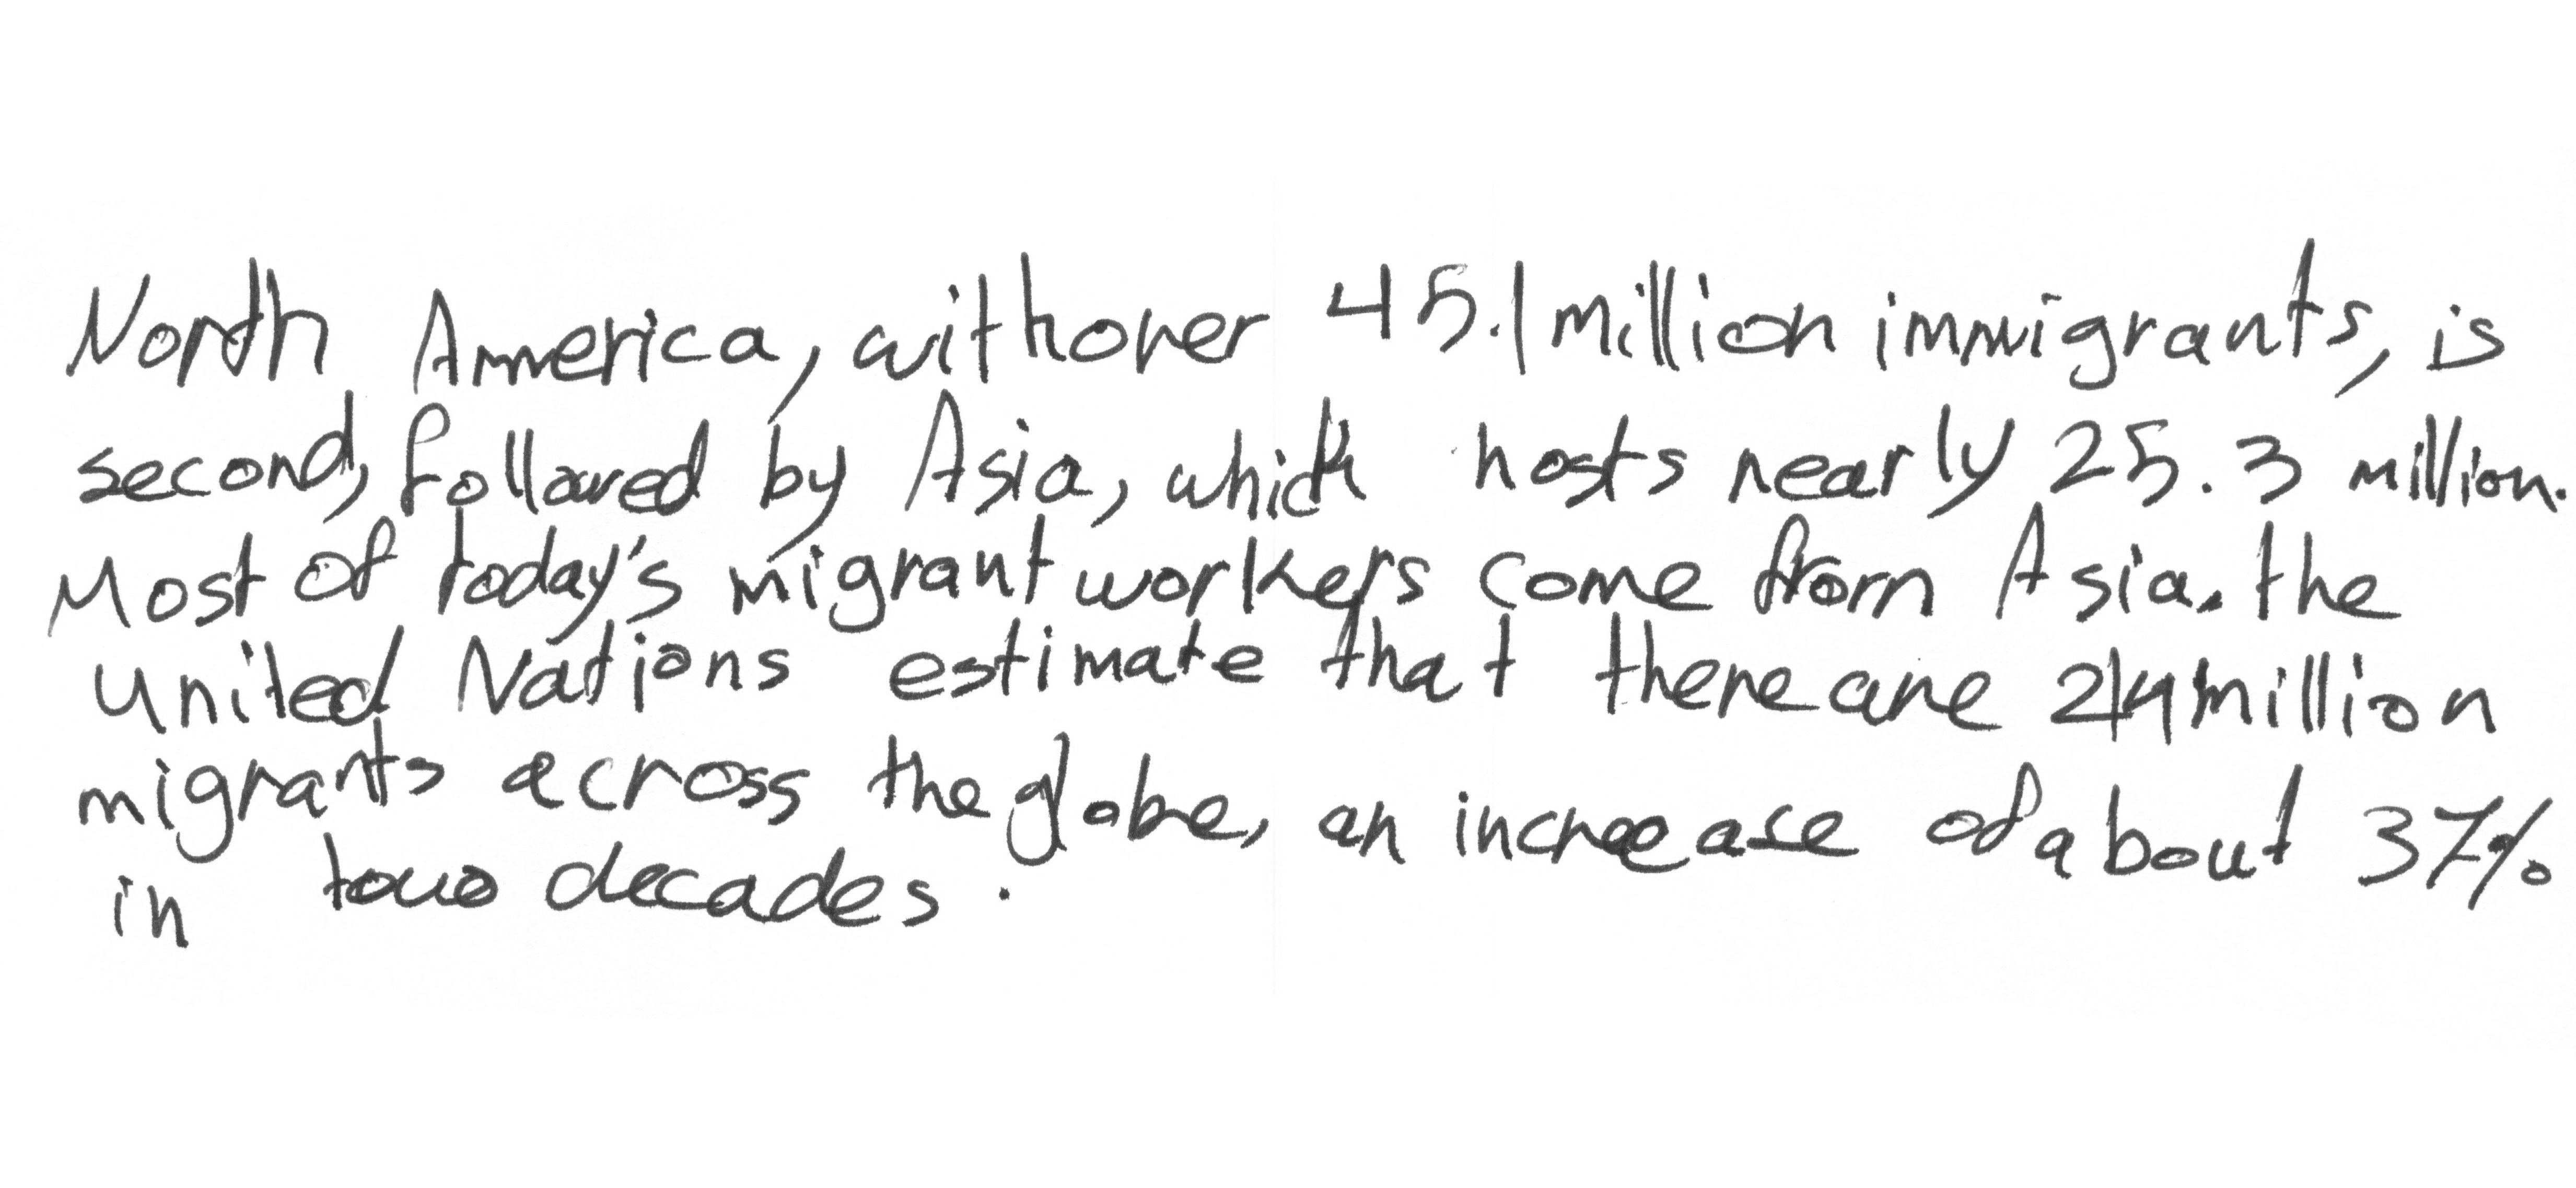 North America, with over 45.1 million immigrants, is
second, followed by Asia, which hosts nearly 25.3 million.
Most of today's migrant workers come from Asia. the
United Nations estimate that there are 214 million
migrants across the globe, an increase of about 37%
in two decades.